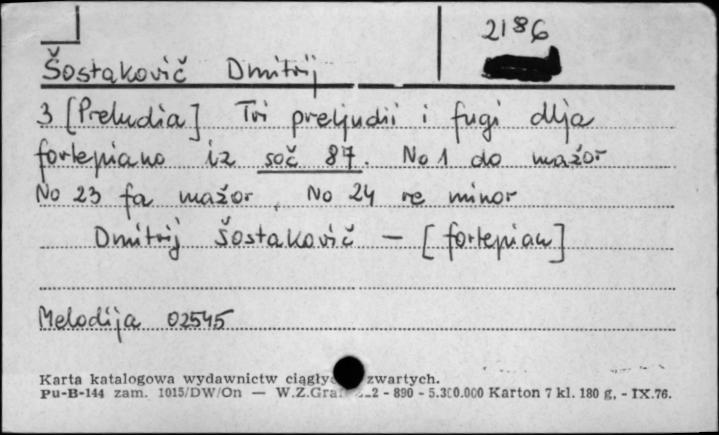 2186
Šostakovič Dmitrij
3 [Preludia] Tri preljudii i fugi dlja
fortepiano iz soč 87. No 1 do mažor
No 23 fa mažor, No 24 re minor
Dmitrij Šostakovič - [fortepian]
Melodija 02545
Karta katalogowa wydawnictw zwartych.
Pu-B-144 zam. 1015/DW/On — W.Z.Graf - 890 - 5.300.000 Karton 7 kl. 180 g. - IX.76.